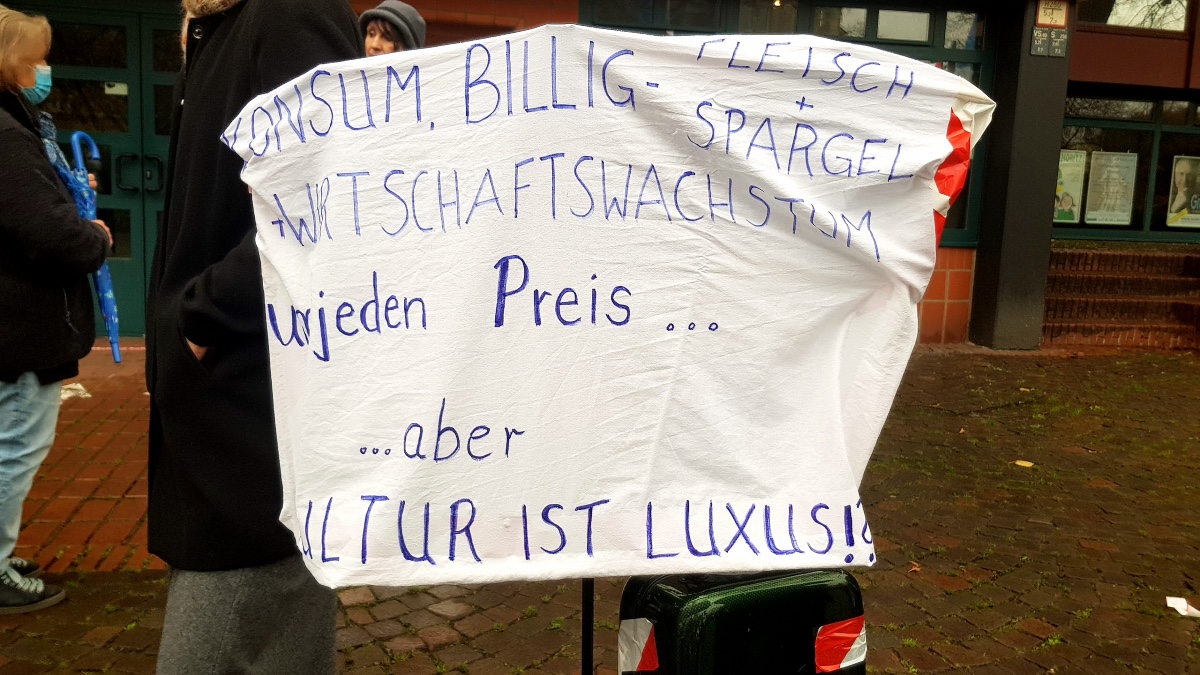 KONSUM, BILLIG- FLEISCH
+
SPARGEL
+WIRTSCHAFTSWACHSTUM
um jeden Preis ...
...aber
KULTUR IST LUXUS!?